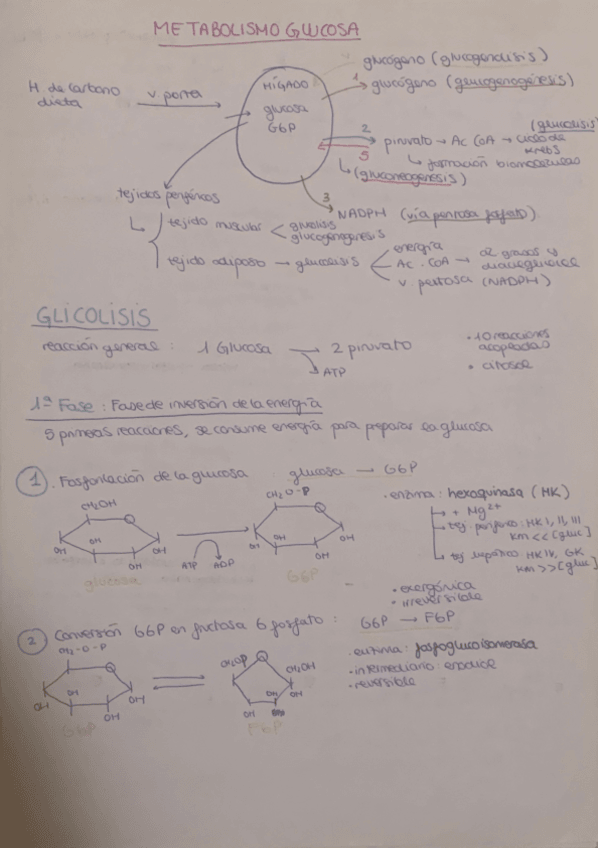 METABOLISMO GLUCOSA
glucógeno (glucogenolisis)
1 glucógeno (glucogenogénesis)
H de carbono dieta
v. porta
HÍGADO
glucosa
G6P
2
5
piruvato → Ac CoA → ciclo de Krebs
(glucolisis)
↳ formación biomoléculas
↳ (gluconeogenesis)
3
NADPH (vía pentosa fosfato)
tejidos periféricos
tejido muscular < glucolisis
glucogenogenesis
tejido adiposo → glucolisis
energía
Ac. CoA → ac grasos y
v. pentosa (NADPH)
GLICOLISIS
reacción general: 1 Glucosa → 2 piruvato
ATP
· 10 reacciones acopladas
· citosol
1ª Fase: Fase de inversión de la energía
5 primeras reacciones, se consume energía para preparar la glucosa
1. Fosforilación de la glucosa: glucosa → G6P
CH2OH
OH
OH
OH
OH
glucosa
ATP
ADP
CH2O-P
OH
OH
OH
OH
G6P
· enzima: hexoquinasa (HK)
→ + Mg2+
→ tej. periferico: HK I, II, III
Km << [gluc]
→ tej hepático: HK IV, GK
Km >> [gluc]
· exergónica
· irreversible
2 Conversión G6P en fructosa 6 fosfato: G6P → F6P
CH2-O-P
OH
OH
OH
OH
G6P
CH2OP
CH2OH
OH
OH
OH
F6P
· enzima: fosfoglucoisomerasa
· intermediario: enodiol
· reversible